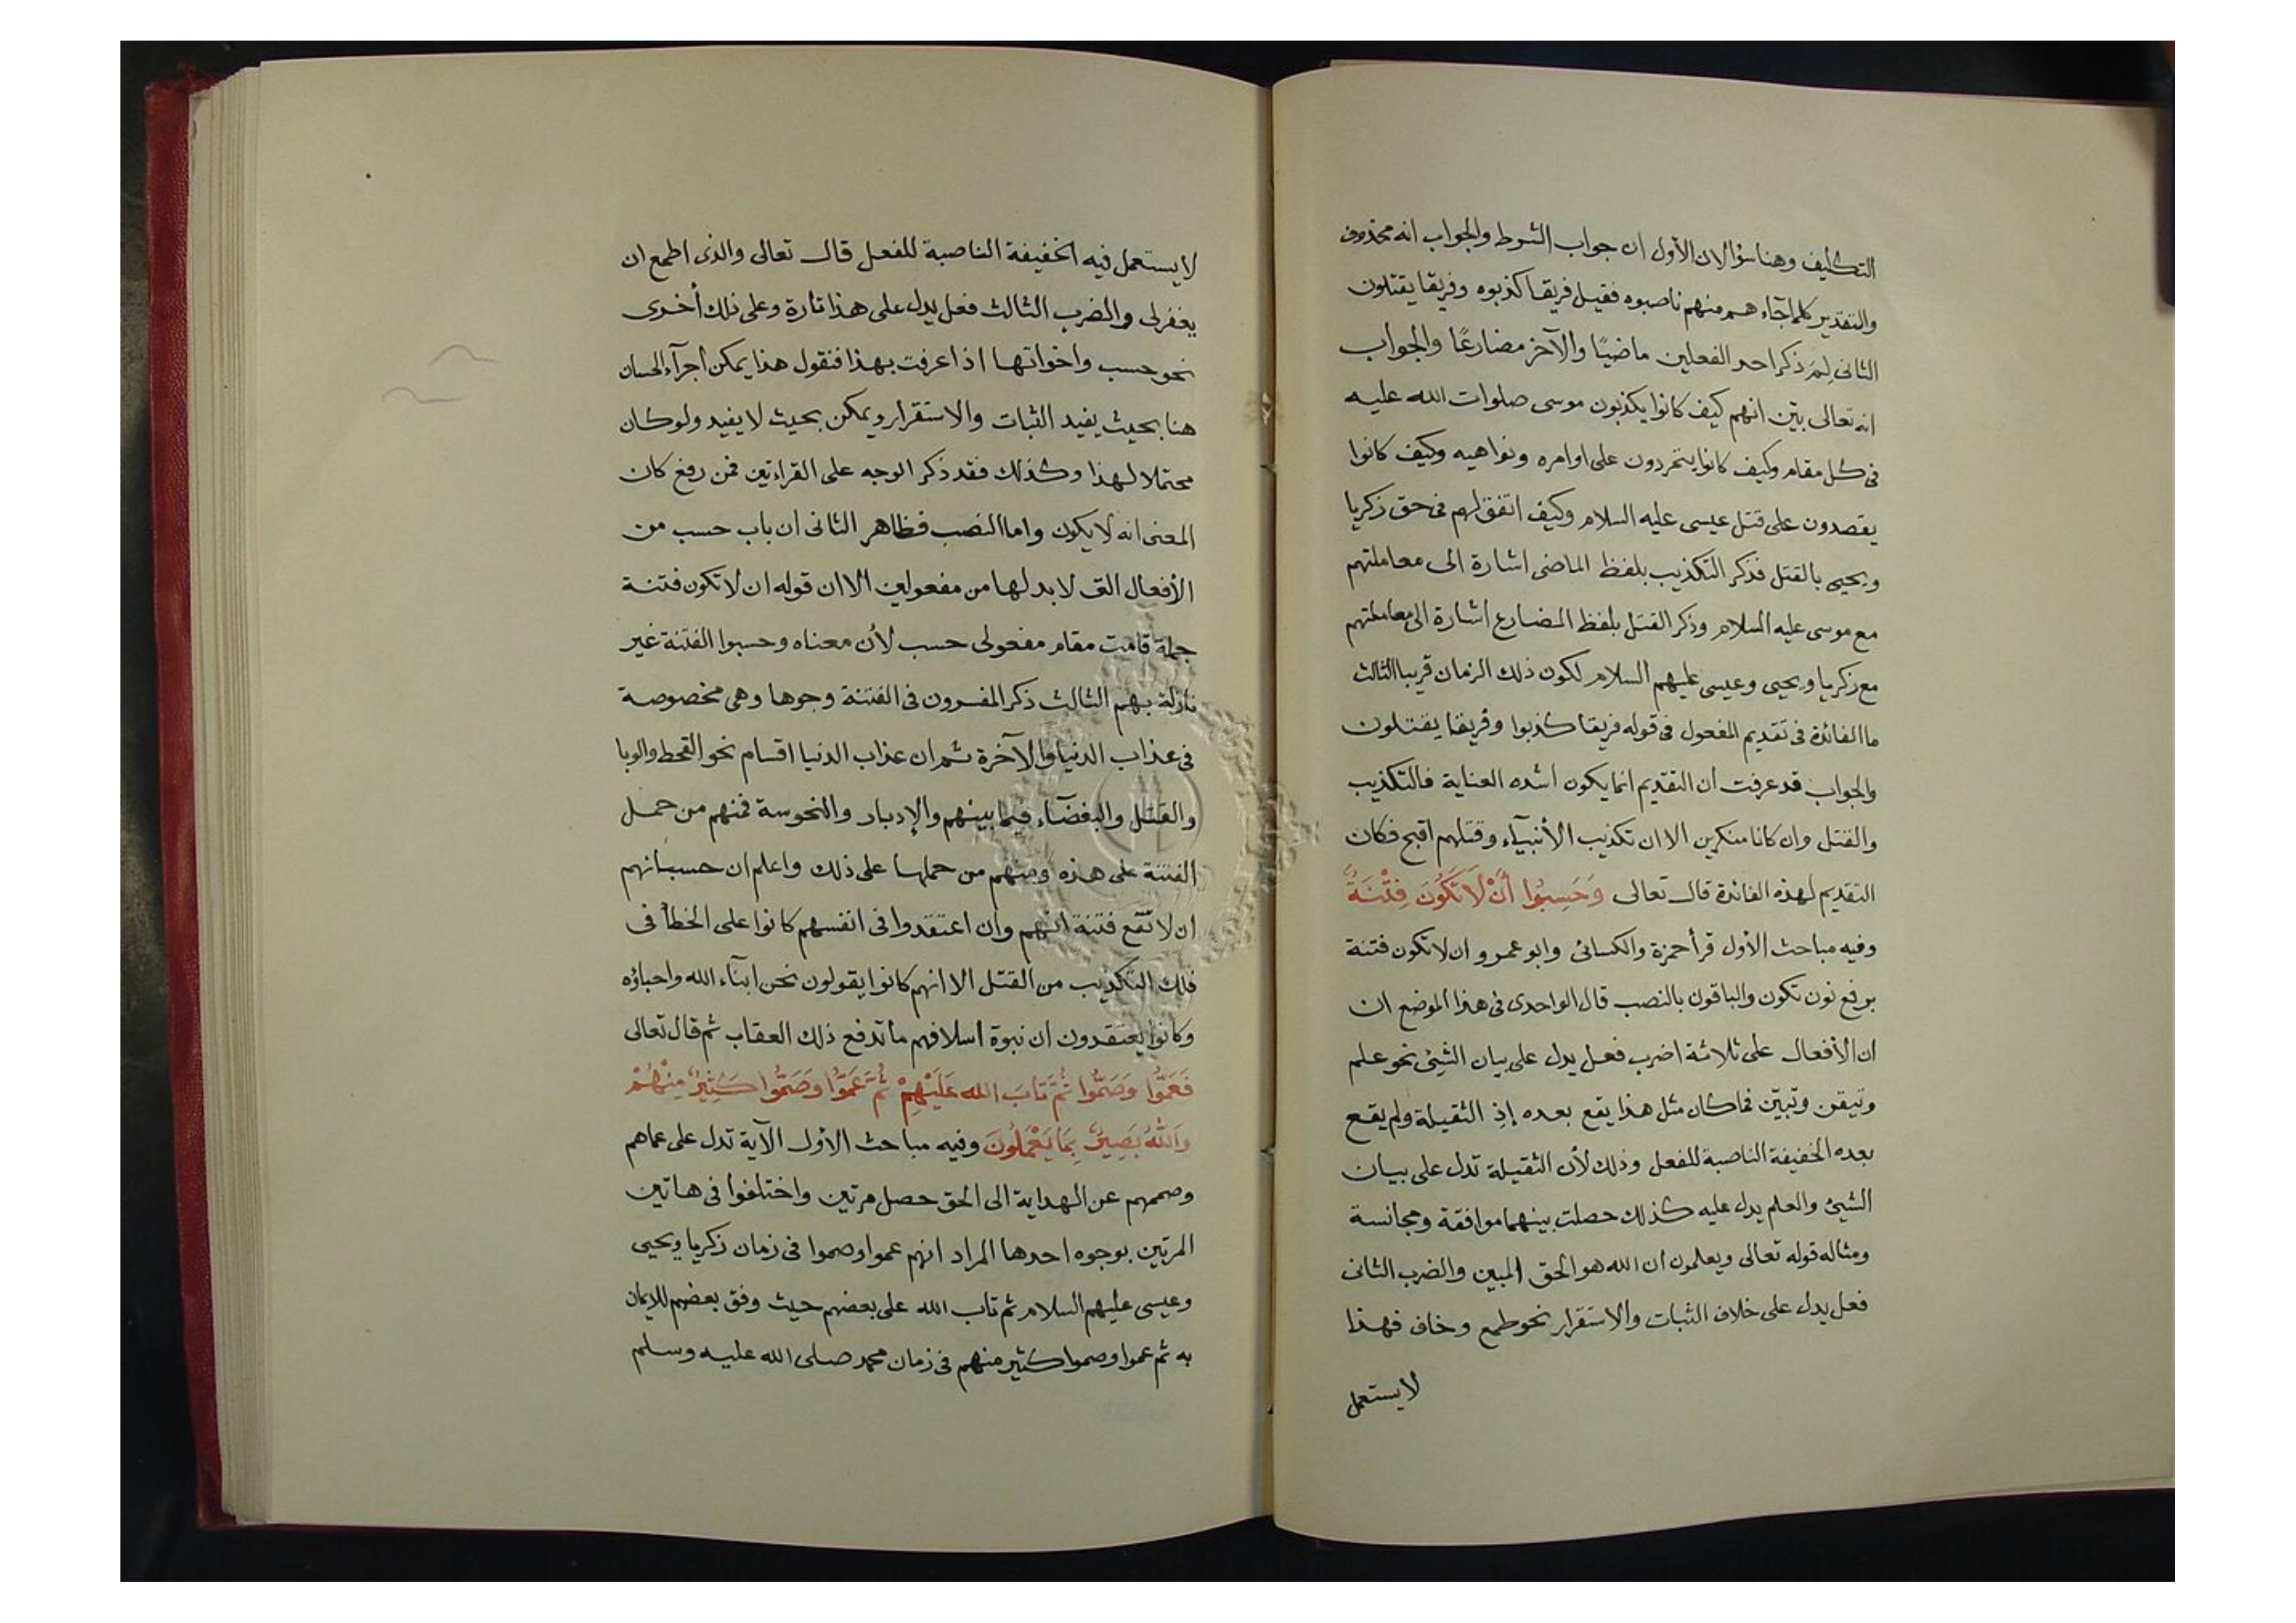 التكليف وهنا سؤالان الأول ان جواب الشرط والجواب انه محذوف
والتقدير كلما جآء هم منهم ناصبوه فقيل فريقا كذبوه وفريقا يقتلون
الثانى لِمَ ذكر احد الفعلين ماضيًا والآخر مضارعًا والجواب
انه تعالى بيّن انهم كيف كانوا يكذبون موسى صلوات الله عليه
فى كل مقام وكيف كانوا يتمردون على اوامره ونواهيه وكيف كانوا
يقصدون على قتل عيسى عليه السلام وكيف اتفق لهم فى حق زكريا
ويحيى بالقتل فذكر التكذيب بلفظ الماضى اشارة الى معاملتهم
مع موسى عليه السلام وذكر القتل بلفظ المضارع اشارة الى معاملتهم
مع زكريا ويحيى وعيسى عليهم السلام لكون ذلك الزمان قريبا الثالث
ما الفائدة فى تقديم المفعول فى قوله فريقا كذبوا وفريقا يقتلون
والجواب قد عرفت أن التقديم انما يكون أشده العناية فالتكذيب
والقتل وان كانا منكرين الا ان تكذيب الأنبيآء وقتلهم اقبح فكان
التقديم لهذه الفائدة قال تعالى وَحَسِبُوا أَنْ لَا تَكُونَ فِتْنَةٌ
وفيه مباحث الأول قرأ حمزة والكسائى وابو عمرو ان لا تكون فتنة
برفع نون تكون والباقون بالنصب قال الواحدى فى هذا الموضع ان
ان الأفعال على ثلاثة اضرب فعل يدل على بيان الشيئ نحو علم
وتيقن وتبيّن فما كان مثل هذا يقع بعده إذِ الثقيلة ولم يقع
بعده الخفيفة الناصبة للفعل وذلك لأن الثقيلة تدل على بيان
الشيئ والعلم يدل عليه كذلك حصلت بينهما موافقة ومجانسة
ومثاله قوله تعالى ويعلمون ان الله هو الحق المبين والضرب الثانى
فعل يدل على خلاف الثبات والاستقرار نحو طمع وخاف فهذا
لا يستعمل
لا يستعمل فيه الخفيفة الناصبة للفعل قال تعالى والذى اطمع ان
يغفر لى والضرب الثالث فعل يدل على هذا تارة وعلى ذلك أخرى
نحو حسب واخواتها اذا عرفت بهذا فنقول هذا يمكن اجرآء الحسان
هنا بحيث يفيد الثبات والاستقرار ويمكن بحيث لا يفيد ولو كان
محتملا لهذا وكذلك فقد ذكر الوجه على القراءتين فمن رفع كان
المعنى انه لا يكون واما النصب فظاهر الثانى ان باب حسب من
الأفعال التى لا بد لها من مفعولين الا ان قوله ان لا تكون فتنة
جملة قامت مقام مفعولى حسب لأن معناه وحسبوا الفتنة غير
نازلة بهم الثالث ذكر المفسرون فى الفتنة وجوها وهى مخصوصة
فى عذاب الدنيا والآخرة ثم ان عذاب الدنيا اقسام نحو القحط والوبا
والقتل والبغضآء فيما بينهم والإدبار والنحوسة فمنهم من حمل
الفتنة على هذه ومنهم من حملها على ذلك واعلم ان حسبانهم
ان لا تقع فتنة انهم وان اعتقدوا فى انفسهم كانوا على الخطأ فى
ذلك التكذيب من القتل الا انهم كانوا يقولون نحن ابنآء الله واحباؤه
وكانوا يعتقدون ان نبوة اسلافهم ما تدفع ذلك العقاب ثم قال تعالى
فَعَمُوا وَصَمُّوا ثُمَّ تَابَ الله عَلَيْهِمْ ثُمَّ عَمُوا وَصَمُّوا كَثِيرٌ مِنْهُمْ
وَاللهُ بَصِيرٌ بِمَا يَعْمَلُونَ وفيه مباحث الاول الآية تدل على عماهم
وصممهم عن الهداية الى الحق حصل مرتين واختلفوا فى هاتين
المرتين بوجوه احدها المراد انهم عموا وصموا فى زمان زكريا ويحيى
وعيسى عليهم السلام ثم تاب الله على بعضهم حيث وفق بعضهم للايمان
به ثم عموا وصموا كثير منهم فى زمان محمد صلى الله عليه وسلم